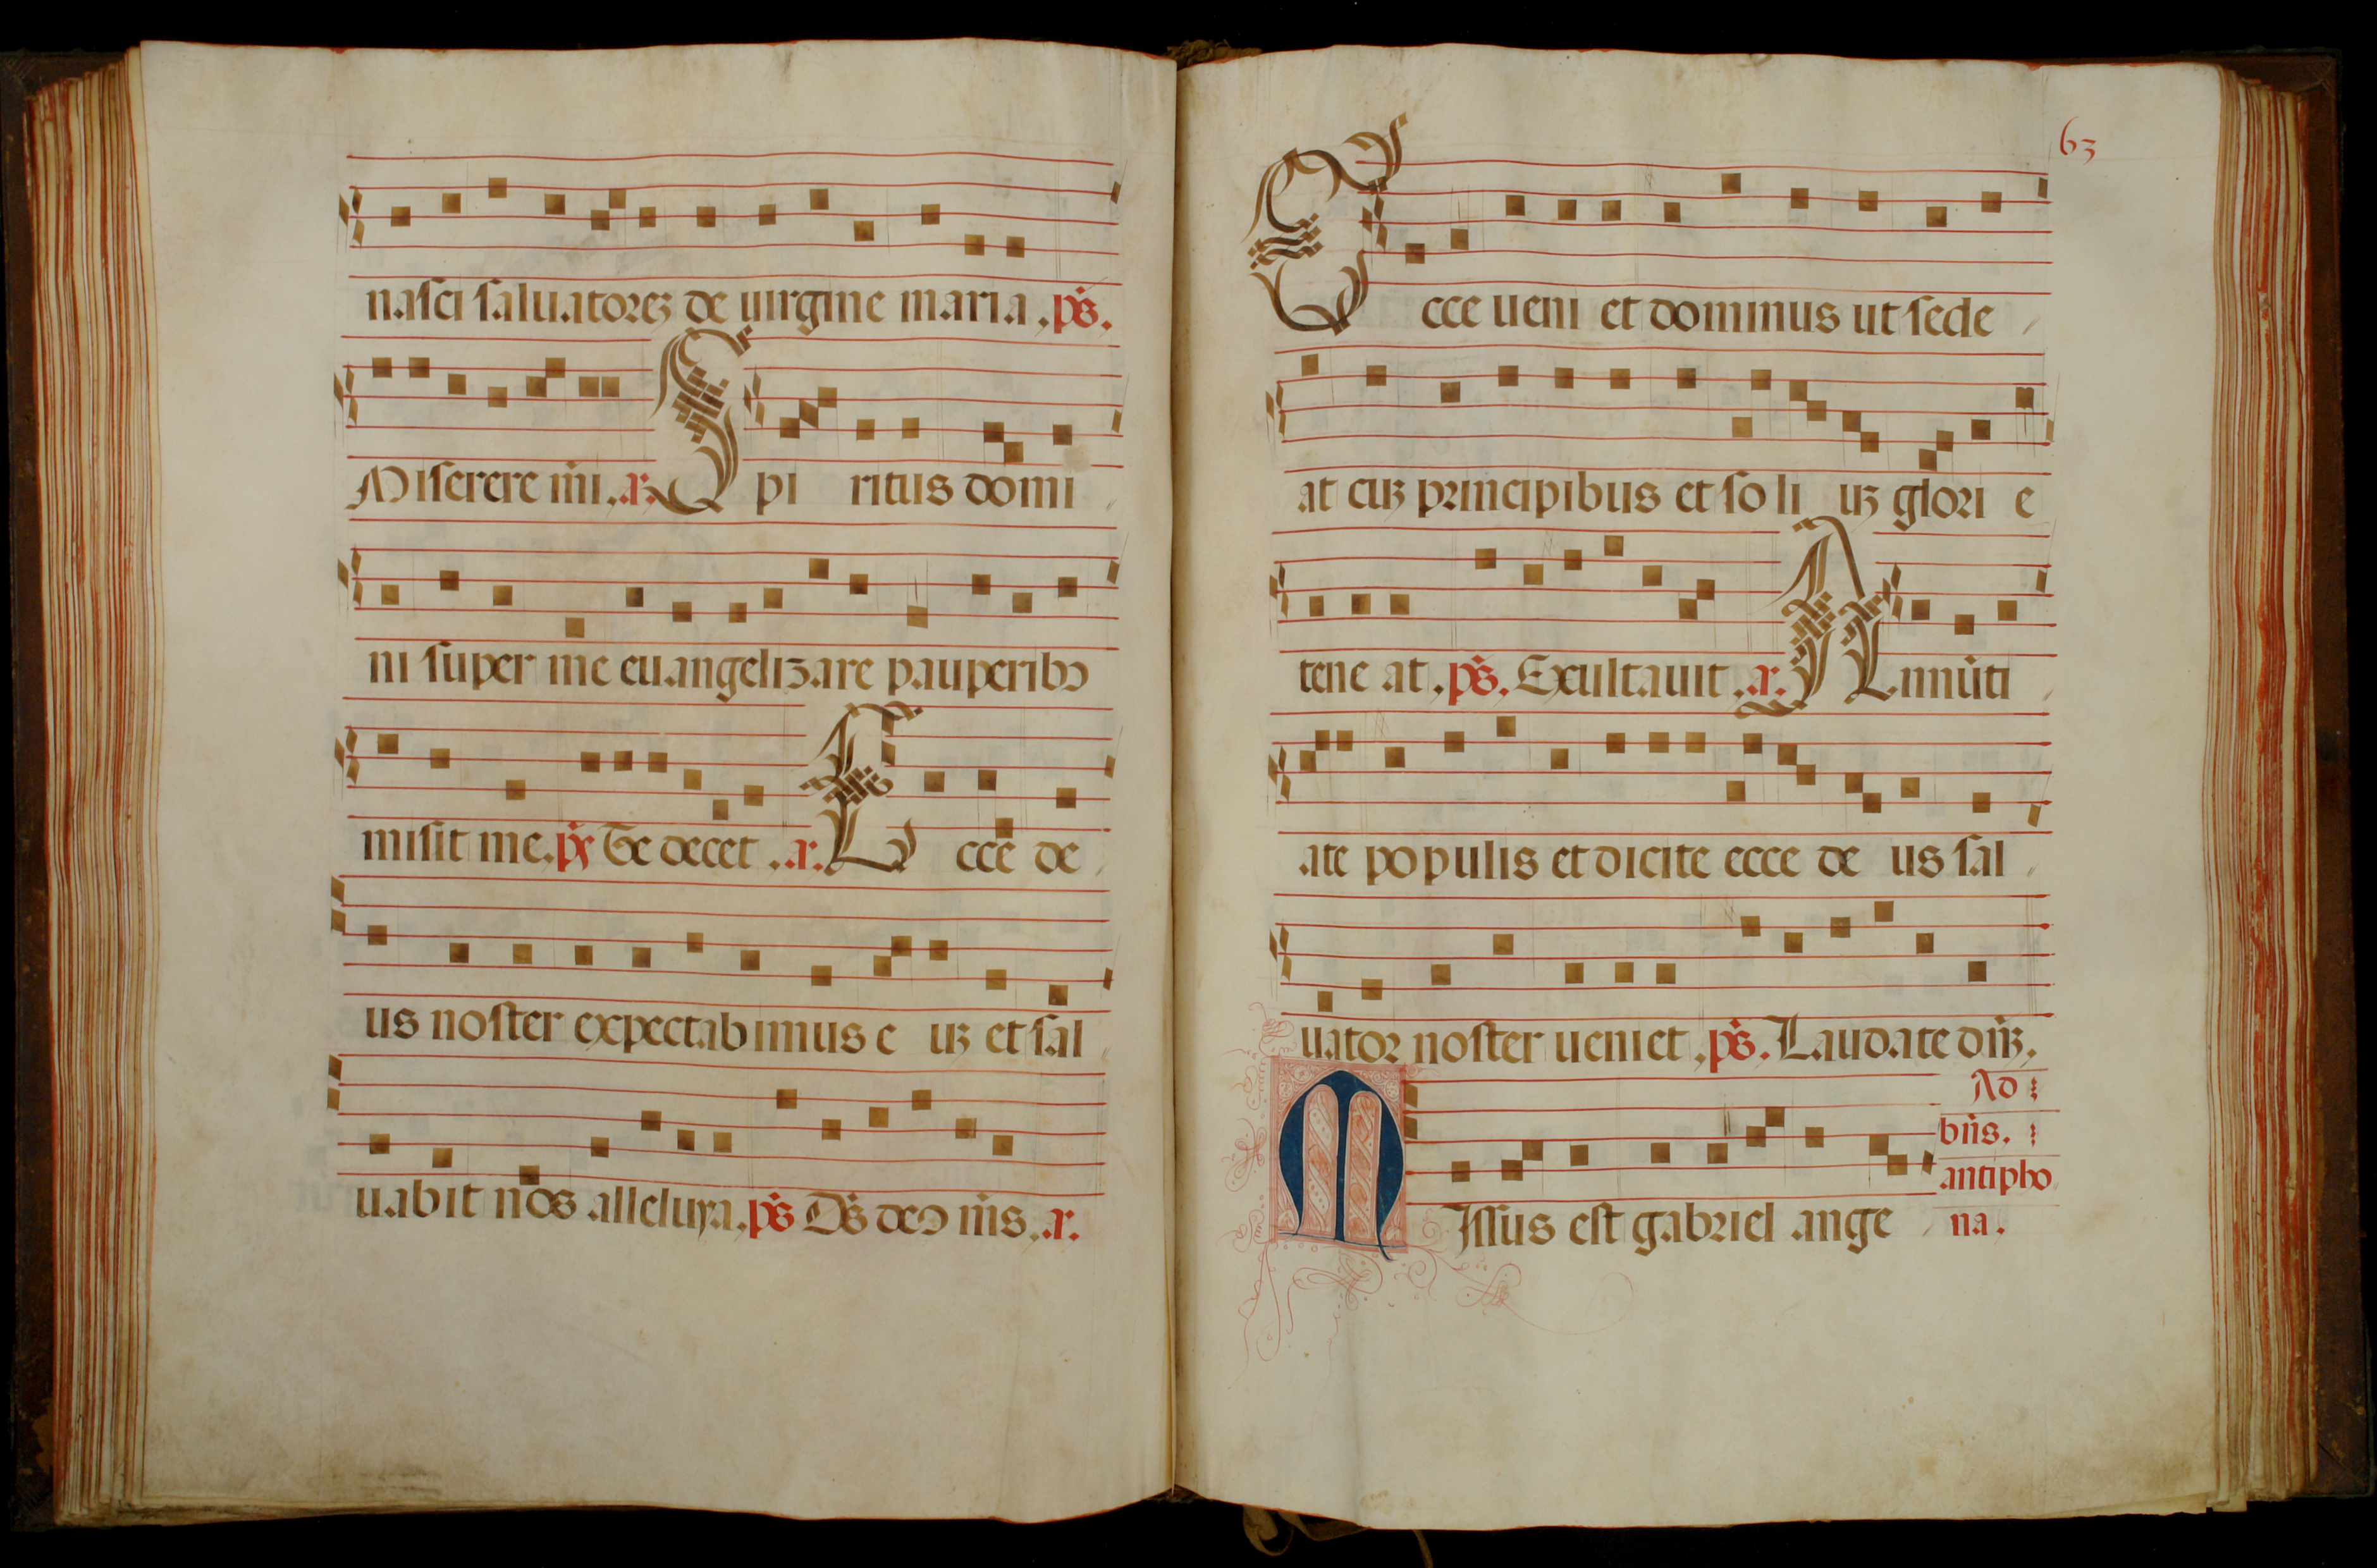 nasci saluatoreꝫ de uirgine maria. p̄s.
Miserere m̄i. a. Spi ritus domi
ni super me euangelizare pauperibꝰ
misit me. p̄s Te decet. a. Ecce de
us noster expectabimus e uꝫ et sal
uabit nos alleluya. p̄s D̄s deoꝝ m̄s. a.
63
Ecce ueni et dominus ut sede
at cuꝫ principibus et so li uꝫ glori e
tene at. p̄s. Exultauit. a. Annūti
ate populis et dicite ecce de us sal
uator noster ueniet. p̄s. Laudate dn̄ꝫ.
Ad
bn̄s.
antipho
na.
Missus est gabriel ange